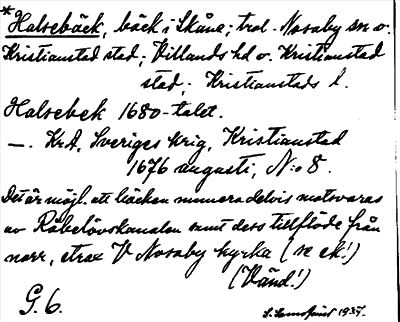 * Halsebäck, bäck i Skåne; trol. Nosaby sn o.
Kristianstad stad; Villands hd o. Kristianstad
stad; Kristianstads l.
Halsebek 1680-talet.
—. KrA, Sveriges krig, Kristianstad
1676 augusti, N:o 8.
Det är möjl. att bäcken numera delvis motsvaras
av Råbelövskanalen samt dess tillflöde från
norr, strax V Nosaby kyrka (se ek!)
(Vänd!)
G. 6.
1937.